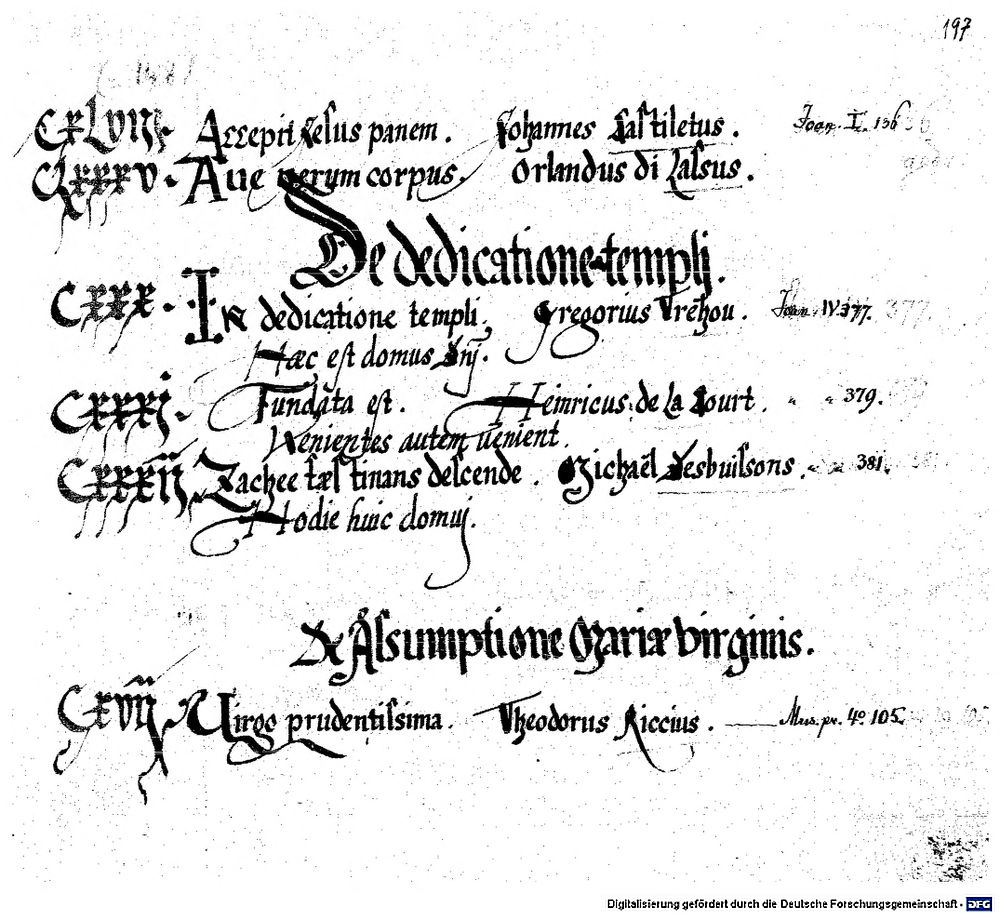 197
CXLVIII. Accepit Jesus panem. Johannes Castiletus. Joan. I. 136
CLXXXV. Aue verum corpus. Orlandus di Lassus.
De dedicatione templi.
CXXX. In dedicatione templi. Gregorius Trehou. Joan. IV. 377.
Hæc est domus Dnj.
CXXXI. Fundata est. Heinricus de La Court. " " 379.
Uenientes autem uenient.
CXXXII. Zachee fæstinans descende. Michaël Desbuissons. " " 381.
Hodie huic domuj.
De Assumptione Mariæ Virginis.
CXVII. Uirgo prudentissima. Theodorus Riccius. Mus. pr. 4º 105.
Digitalisierung gefördert durch die Deutsche Forschungsgemeinschaft - DFG